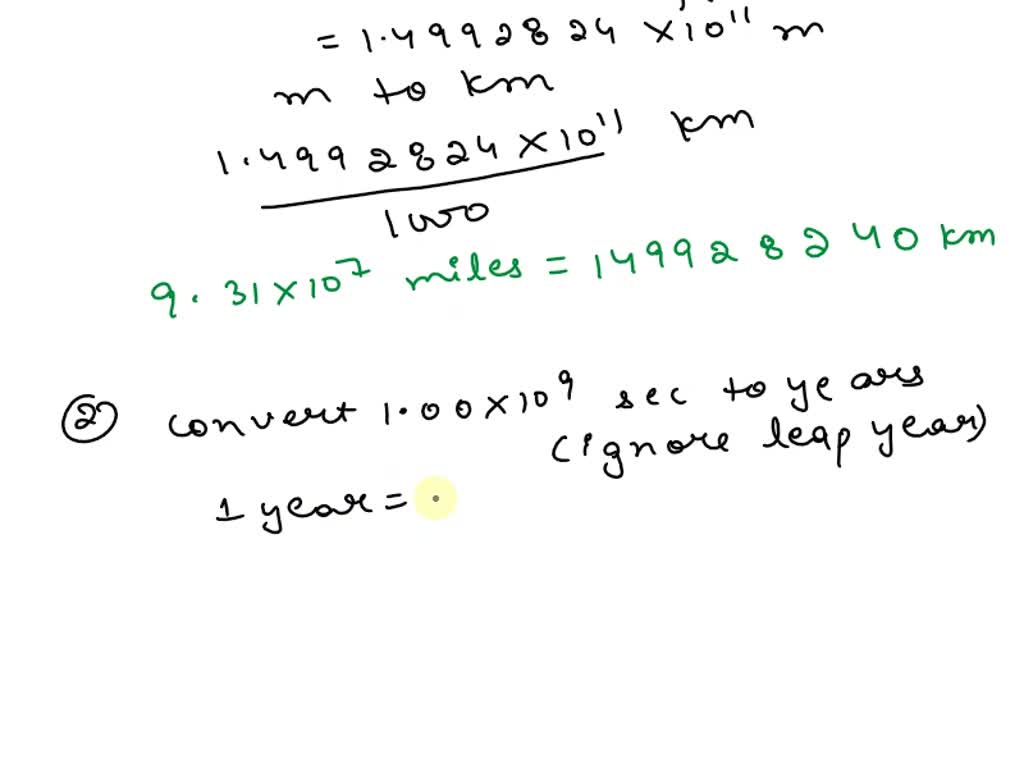 = 1.4992824 ×10¹¹ m
m to km
1.4992824 ×10¹¹ km
1000
9.31×10⁷ miles = 149928240 km
② convert 1.00×10⁹ sec to years
(ignore leap year)
1 year =